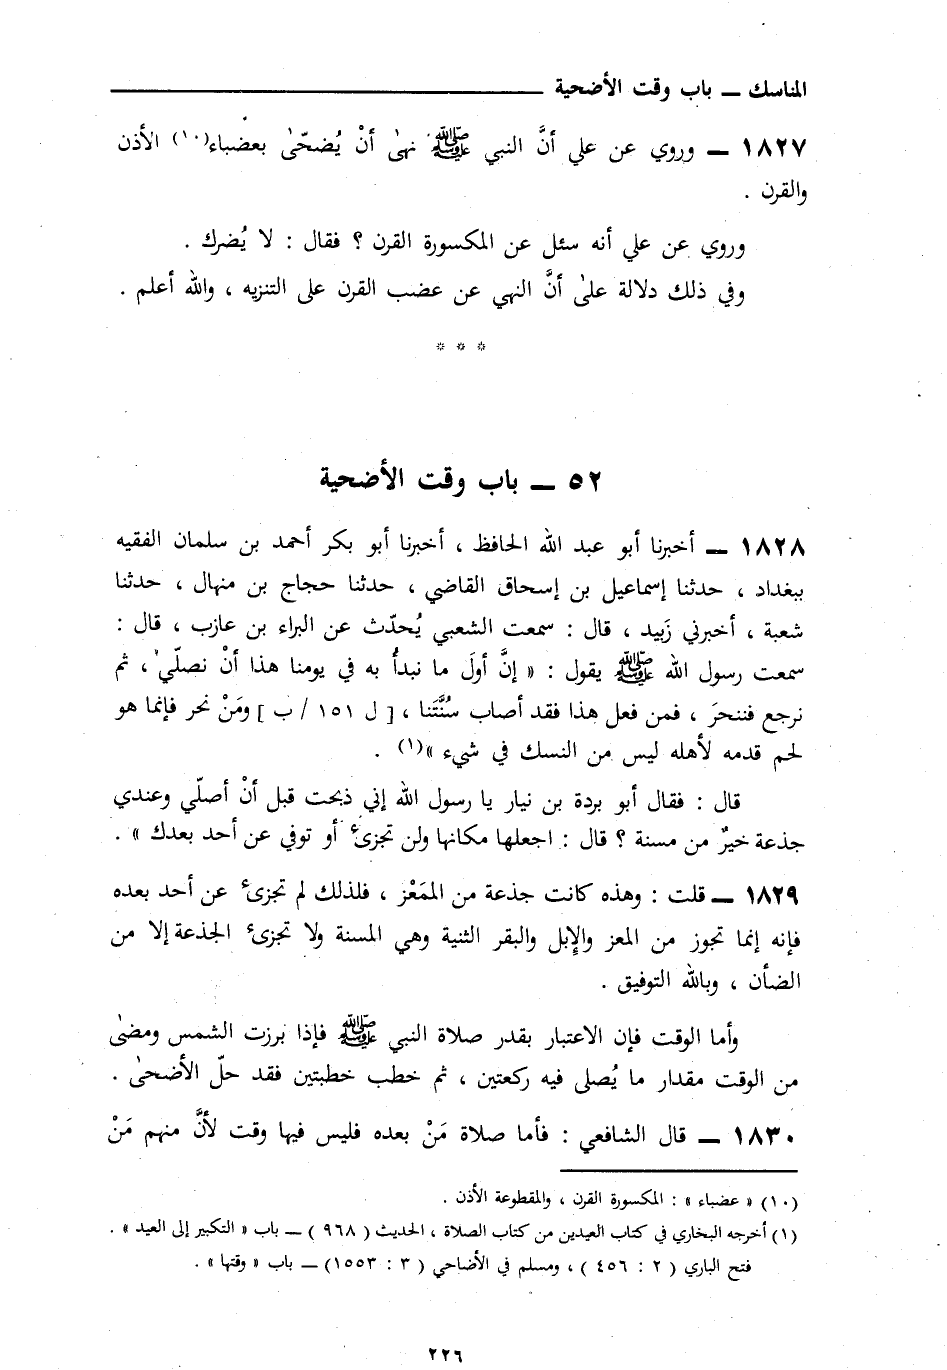 المناسك ــ باب وقت الأضحية
١٨٢٧ ــ وروي عن علي أنَّ النبي ﷺ نهىٰ أنْ يُضحّىٰ بعضباء(١٠) الأذن
والقرن .
وروي عن علي أنه سئل عن المكسورة القرن ؟ فقال : لا يُضرك .
وفي ذلك دلالة علىٰ أنَّ النهي عن عضب القرن على التنزيه ، والله أعلم .
* * *
٥٢ ــ باب وقت الأضحية
١٨٢٨ ــ أخبرنا أبو عبد الله الحافظ ، أخبرنا أبو بكر أحمد بن سلمان الفقيه
ببغداد ، حدثنا إسماعيل بن إسحاق القاضي ، حدثنا حجاج بن منهال ، حدثنا
شعبة ، أخبرني زَبيد ، قال : سمعت الشعبي يُحدّث عن البراء بن عازب ، قال :
سمعت رسول الله ﷺ يقول : « إنَّ أولَ ما نبدأُ به في يومنا هذا أنْ نصلّي ، ثم
نرجع فننحرَ ، فمن فعل هذا فقد أصاب سُنَّتَنا ، [ ل ١٥١ / ب ] ومَنْ نحر فإنما هو
لحم قدمه لأهله ليس من النسك في شيء »(١) .
قال : فقال أبو بردة بن نيار يا رسول الله إني ذبحت قبل أنْ أصلّي وعندي
جذعة خيرٌ من مسنة ؟ قال : اجعلها مكانها ولن تجزىء أو توفي عن أحد بعدك » .
١٨٢٩ ــ قلت : وهذه كانت جذعة من المَعْز ، فلذلك لم تجزىء عن أحد بعده
فإنه إنما تجوز من المعز والإبل والبقر الثنية وهي المسنة ولا تجزىء الجذعة إلا من
الضأن ، وبالله التوفيق .
وأما الوقت فإن الاعتبار بقدر صلاة النبي ﷺ فإذا برزت الشمس ومضىٰ
من الوقت مقدار ما يُصلى فيه ركعتين ، ثم خطب خطبتين فقد حلّ الأضحىٰ .
١٨٣٠ ــ قال الشافعي : فأما صلاة مَنْ بعده فليس فيها وقت لأنَّ منهم مَنْ
(١٠) « عضباء » : المكسورة القرن ، والمقطوعة الأذن .
(١) أخرجه البخاري في كتاب العيدين من كتاب الصلاة ، الحديث ( ٩٦٨ ) ــ باب « التكبير إلى العيد » .
فتح الباري ( ٢ : ٤٥٦ ) ، ومسلم في الأضاحي ( ٣ : ١٥٥٣) ــ باب « وقتها » .
٢٢٦